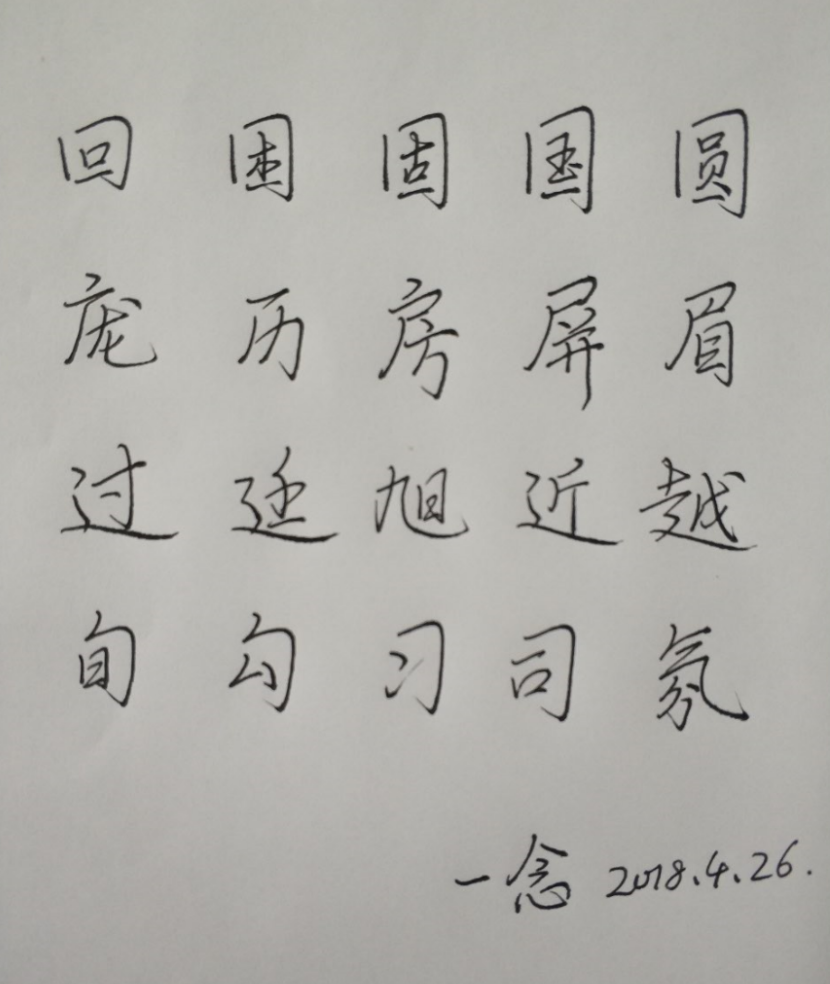 回 困 固 国 圆
庞 历 房 屏 眉
过 廷 旭 近 越
旬 勾 习 司 氛
一念 2018.4.26.